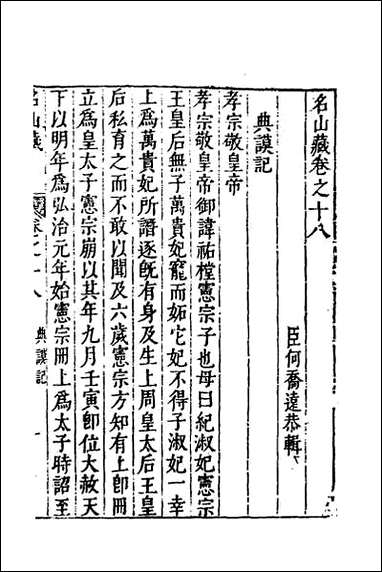 名山藏卷之十八
臣何喬遠恭輯
典謨記
孝宗敬皇帝
孝宗敬皇帝御諱祐樘憲宗子也母曰紀淑妃憲宗
王皇后無子萬貴妃寵而妬它妃不得子淑妃一幸
上爲萬貴妃所譖逐旣有身及生上周皇太后王皇
后私育之而不敢以聞及六歲憲宗方知有上卽冊
立爲皇太子憲宗崩以其年九月壬寅卽位大赦天
下以明年爲弘治元年始憲宗冊上爲太子時詔至
名山藏
卷之十八
典謨記
一